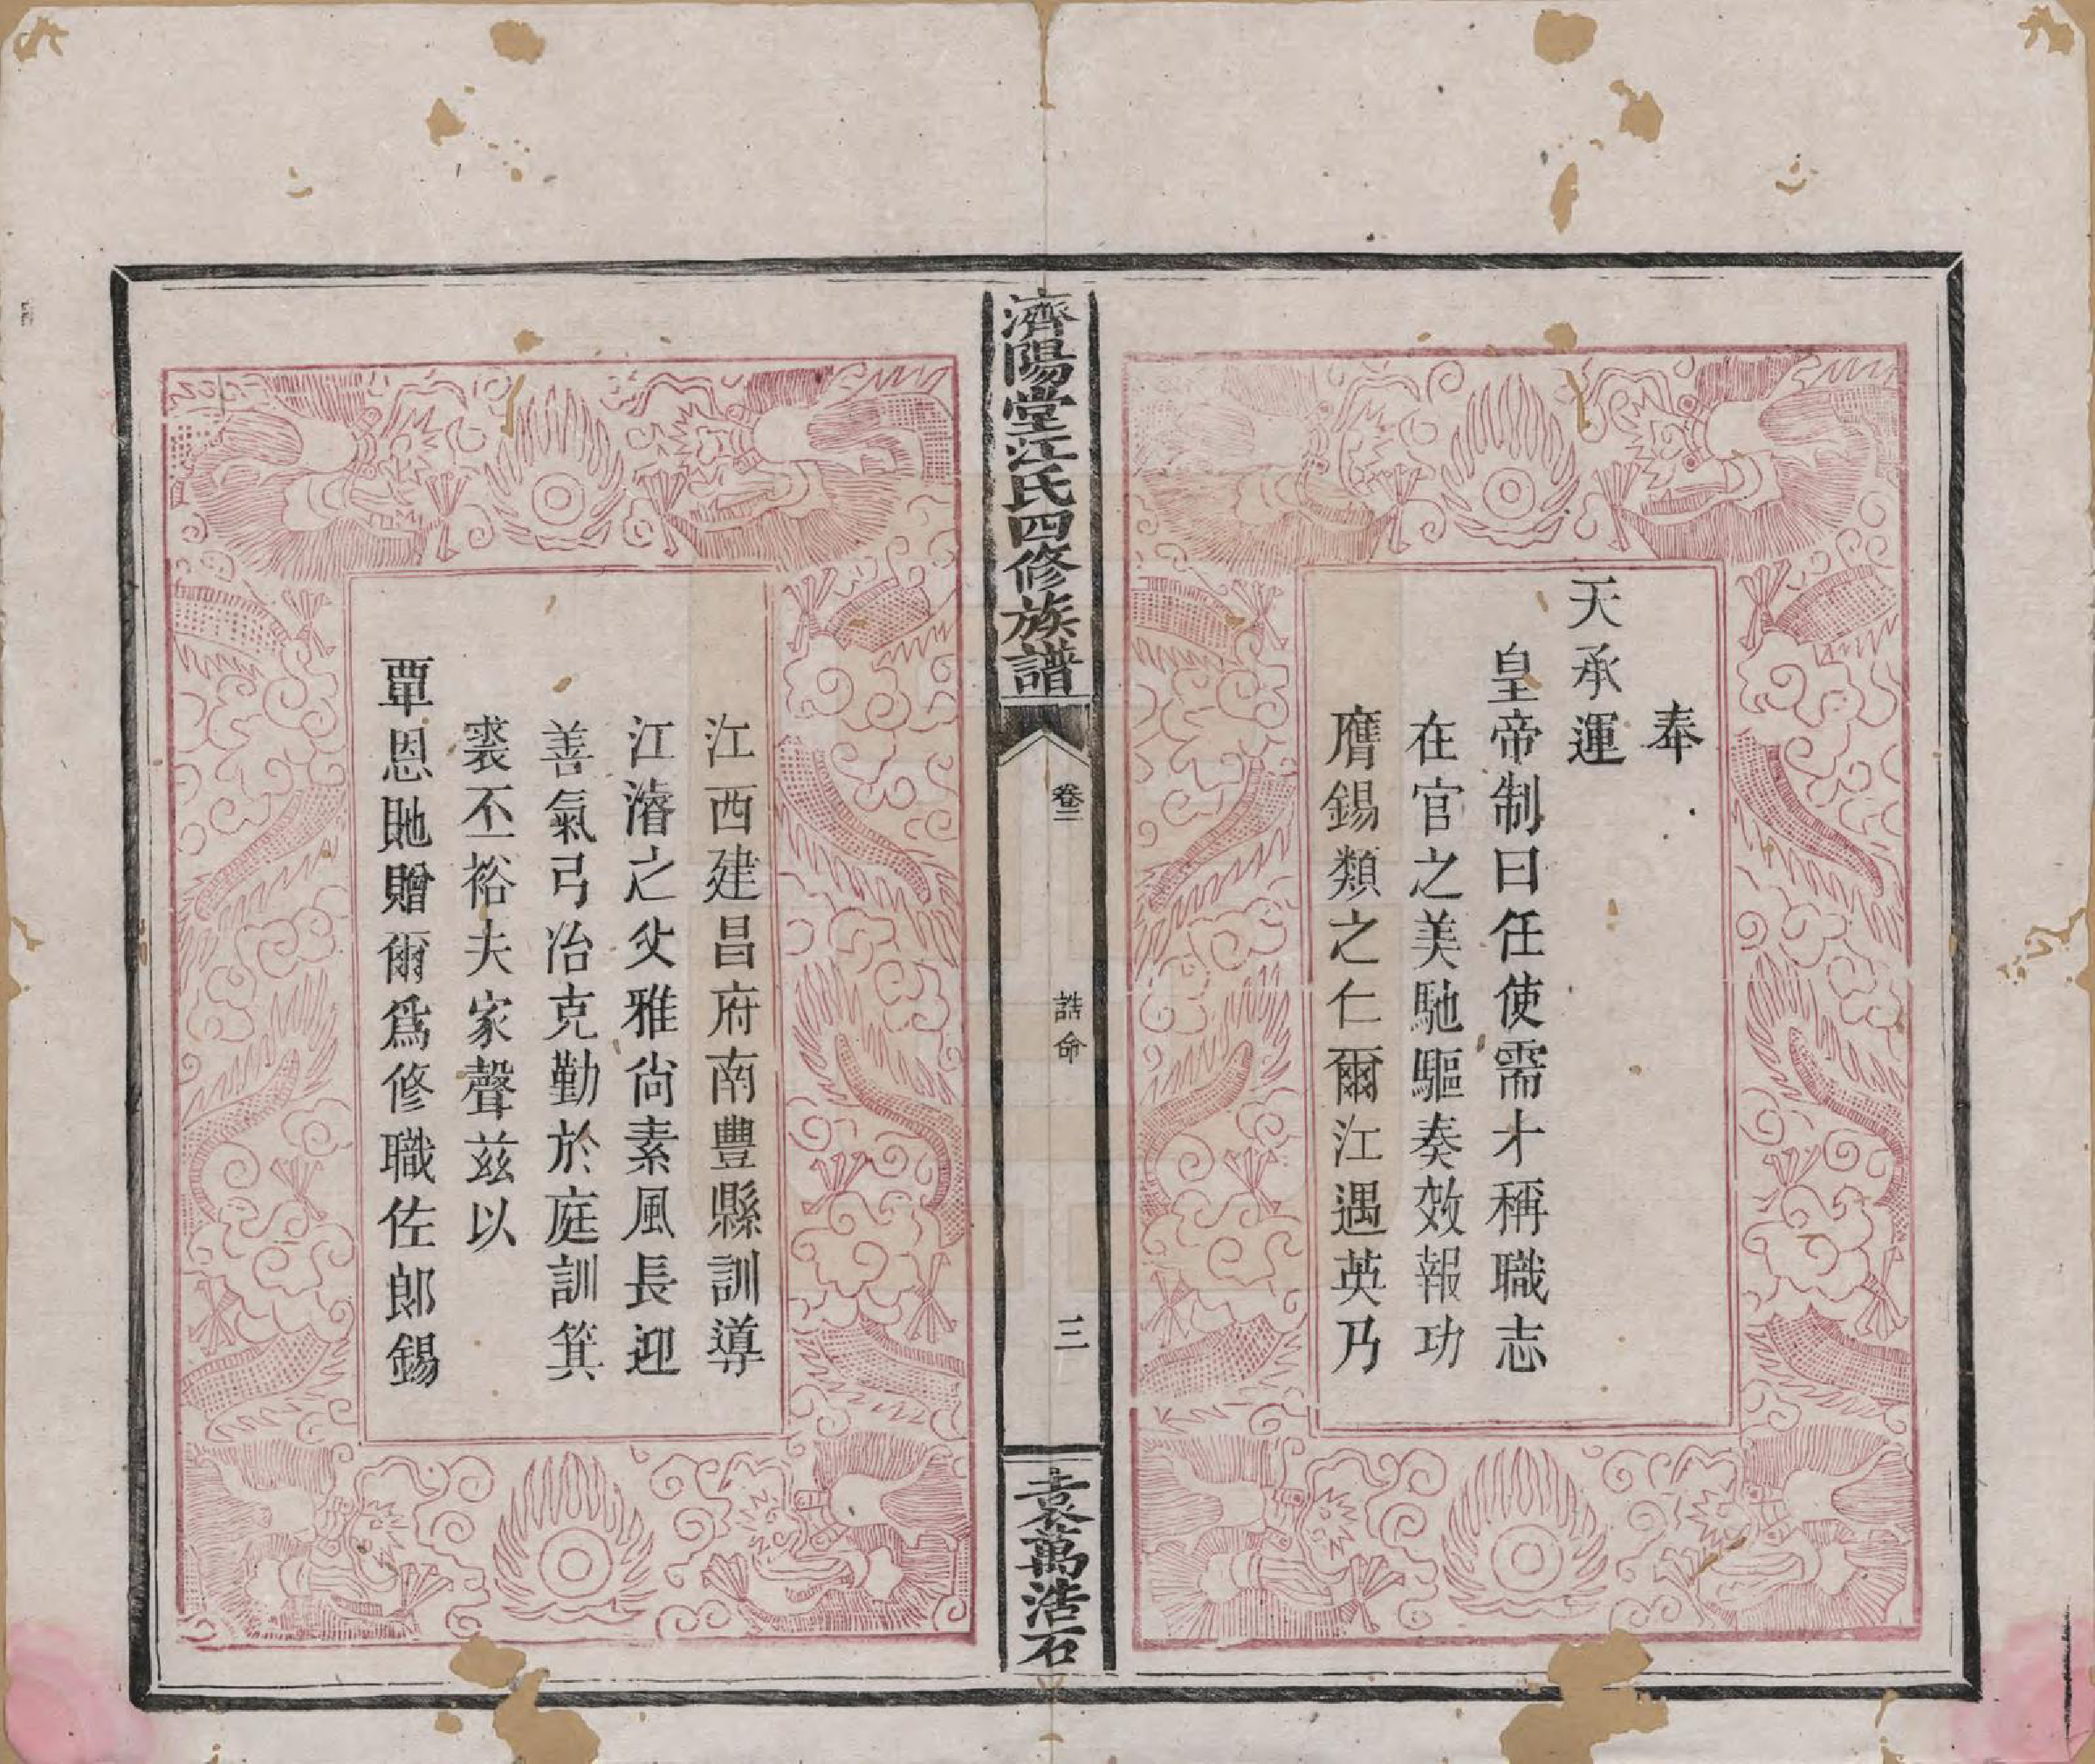 奉
天承運
皇帝制曰任使需才稱職志
在官之美馳驅奏效報功
膺錫類之仁爾江遇英乃
濟陽堂江氏四修族譜
卷二
誥命
三
袁萬浩石
江西建昌府南豐縣訓導
江濬之父雅尙素風長迎
善氣弓冶克勤於庭訓箕
裘丕裕夫家聲茲以
覃恩貤贈爾爲修職佐郎錫